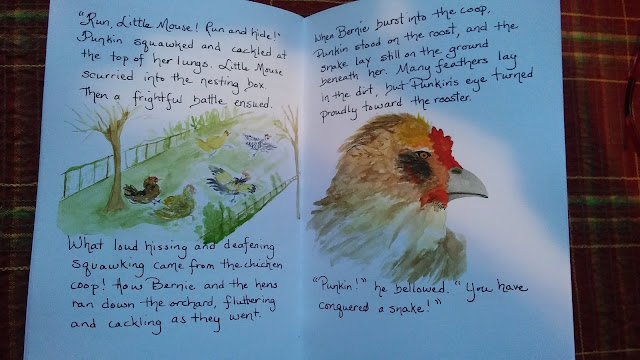 "Run, Little Mouse! Run and hide!"
Punkin squawked and cackled at
the top of her lungs. Little Mouse
scurried into the nesting box.
Then a frightful battle ensued.
What loud hissing and deafening
squawking came from the chicken
coop! How Bernie and the hens
ran down the orchard, fluttering
and cackling as they went.
When Bernie burst into the coop,
Punkin stood on the roost, and the
snake lay still on the ground
beneath her. Many feathers lay
in the dirt, but Punkin's eye turned
proudly toward the rooster.
"Punkin!" he bellowed. "You have
conquered a snake!"